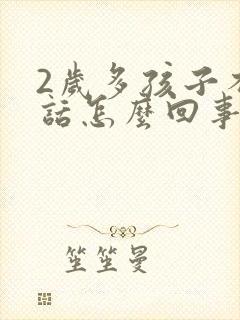 2歲多孩子不
話怎麼回事
笙笙曼